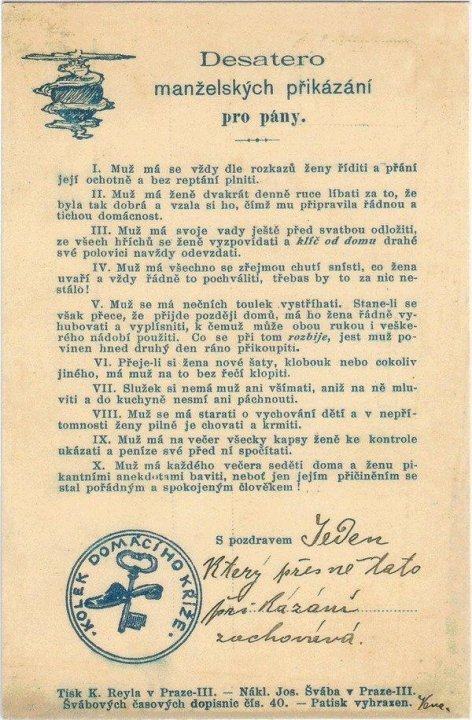 Desatero
manželských přikázání
pro pány.
I. Muž má se vždy dle rozkazů ženy říditi a přání
její ochotně a bez reptání plniti.
II. Muž má ženě dvakrát denně ruce líbati za to, že
byla tak dobrá a vzala si ho, čímž mu připravila řádnou a
tichou domácnost.
III. Muž má svoje vady ještě před svatbou odložiti,
ze všech hříchů se ženě vyzpovídati a klíč od domu drahé
své polovici navždy odevzdati.
IV. Muž má všechno se zřejmou chutí snísti, co žena
uvaří a vždy řádně to pochváliti, třebas by to za nic ne-
stálo!
V. Muž se má nočních toulek vystříhati. Stane-li se
však přece, že přijde později domů, má ho žena řádně vy-
hubovati a vyplísniti, k čemuž může obou rukou i veške-
rého nádobí použíti. Co se při tom rozbije, jest muž po-
vinen hned druhý den ráno přikoupiti.
VI. Přeje-li si žena nové šaty, klobouk nebo cokoliv
jiného, má muž na to bez řečí klopiti.
VII. Služek si nemá muž ani všímati, aniž na ně mlu-
viti a do kuchyně nesmí ani páchnouti.
VIII. Muž se má starati o vychování dětí a v nepří-
tomnosti ženy pilně je chovati a krmiti.
IX. Muž má na večer všecky kapsy ženě ke kontrole
ukázati a peníze své před ní spočítati.
X. Muž má každého večera seděti doma a ženu pi-
kantními anekdotami baviti, neboť jen jejím přičiněním se
stal pořádným a spokojeným člověkem!
S pozdravem Jeden
Který přesně tato
přikázání
zachovává.
KOLEK DOMÁCÍHO KŘÍŽE.
Tisk K. Reyla v Praze-III. — Nákl. Jos. Švába v Praze-III.
Švábových časových dopisnic čís. 40. — Patisk vyhrazen.